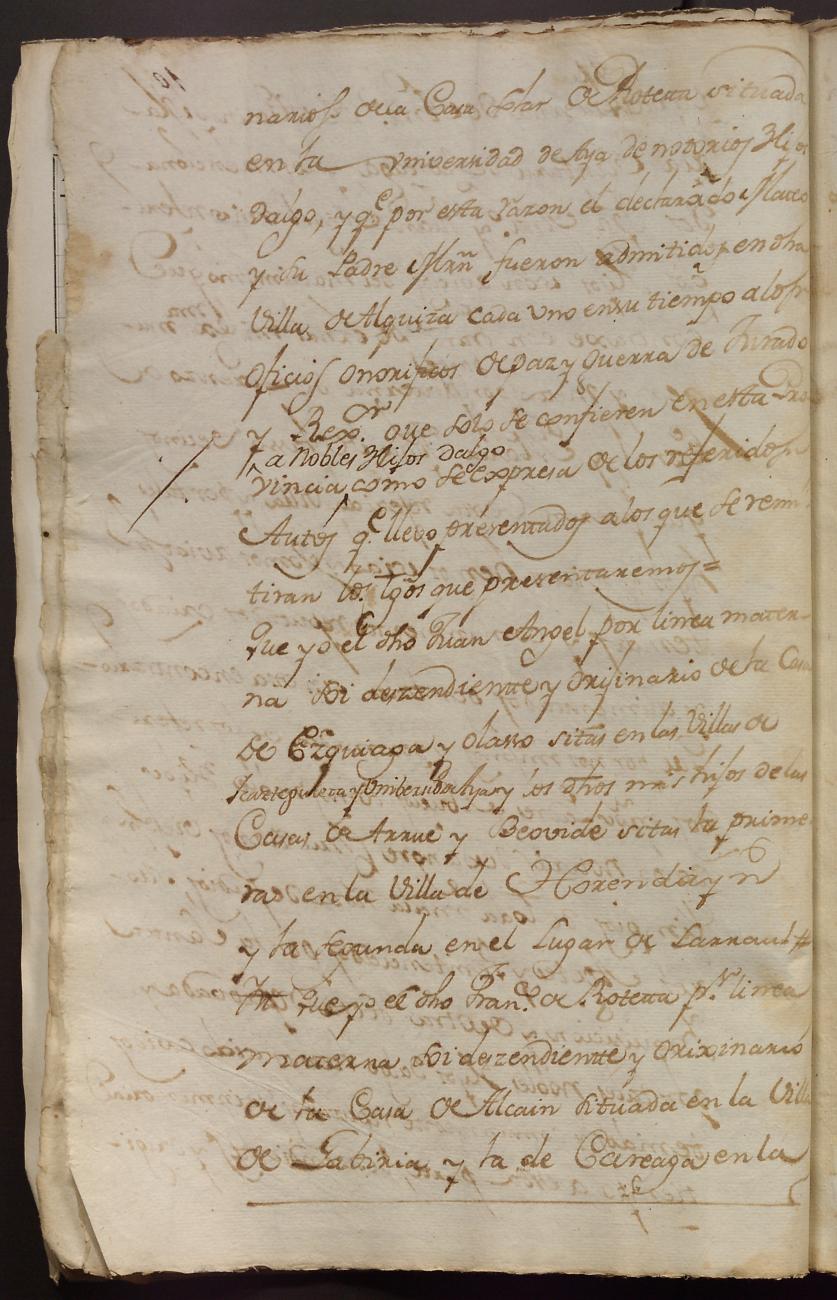 narios de la Casa solar de Roteta situada
en la Universidad de Aya de notorios Hijos
dalgo, y qe por esta razon el declarado Mateo
y su Padre Mrñ fueron admitidos en dha
Villa de Alquiza cada uno en su tiempo a los
oficios onorificos de Paz y Guerra de Jurado
y Rexor que solo se confieren en esta Pro
a Nobles Hijos dalgo
vincia como se expresa de los referidos
Autos qe llevo presentados a los que se remi
tiran los tgos que presentaremos =
Que yo el dho Juan Angel por linea mater-
na soi deszendiente y orijinario de la Casa
de Ezquiaga y olasso sitas en las Villas de
Icazteguieta y Universidad de Aya y los dhos mis hijos de las
Casas de Arrue y Beovide sitas la prime
ra en la Villa de Horendiayn
y la segunda en el Lugar de Larraul #
Que yo el dho Franco de Roteta pr linea
materna soi deszendiente y orixinario
de la Casa de Alcain situada en la Villa
de Gabiria y la de Careaga en la